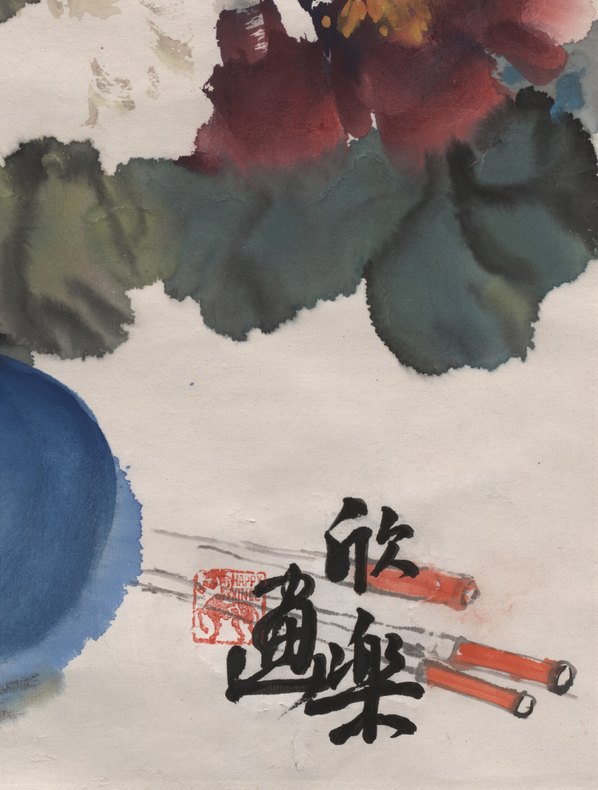 欣樂
画
HAPPY